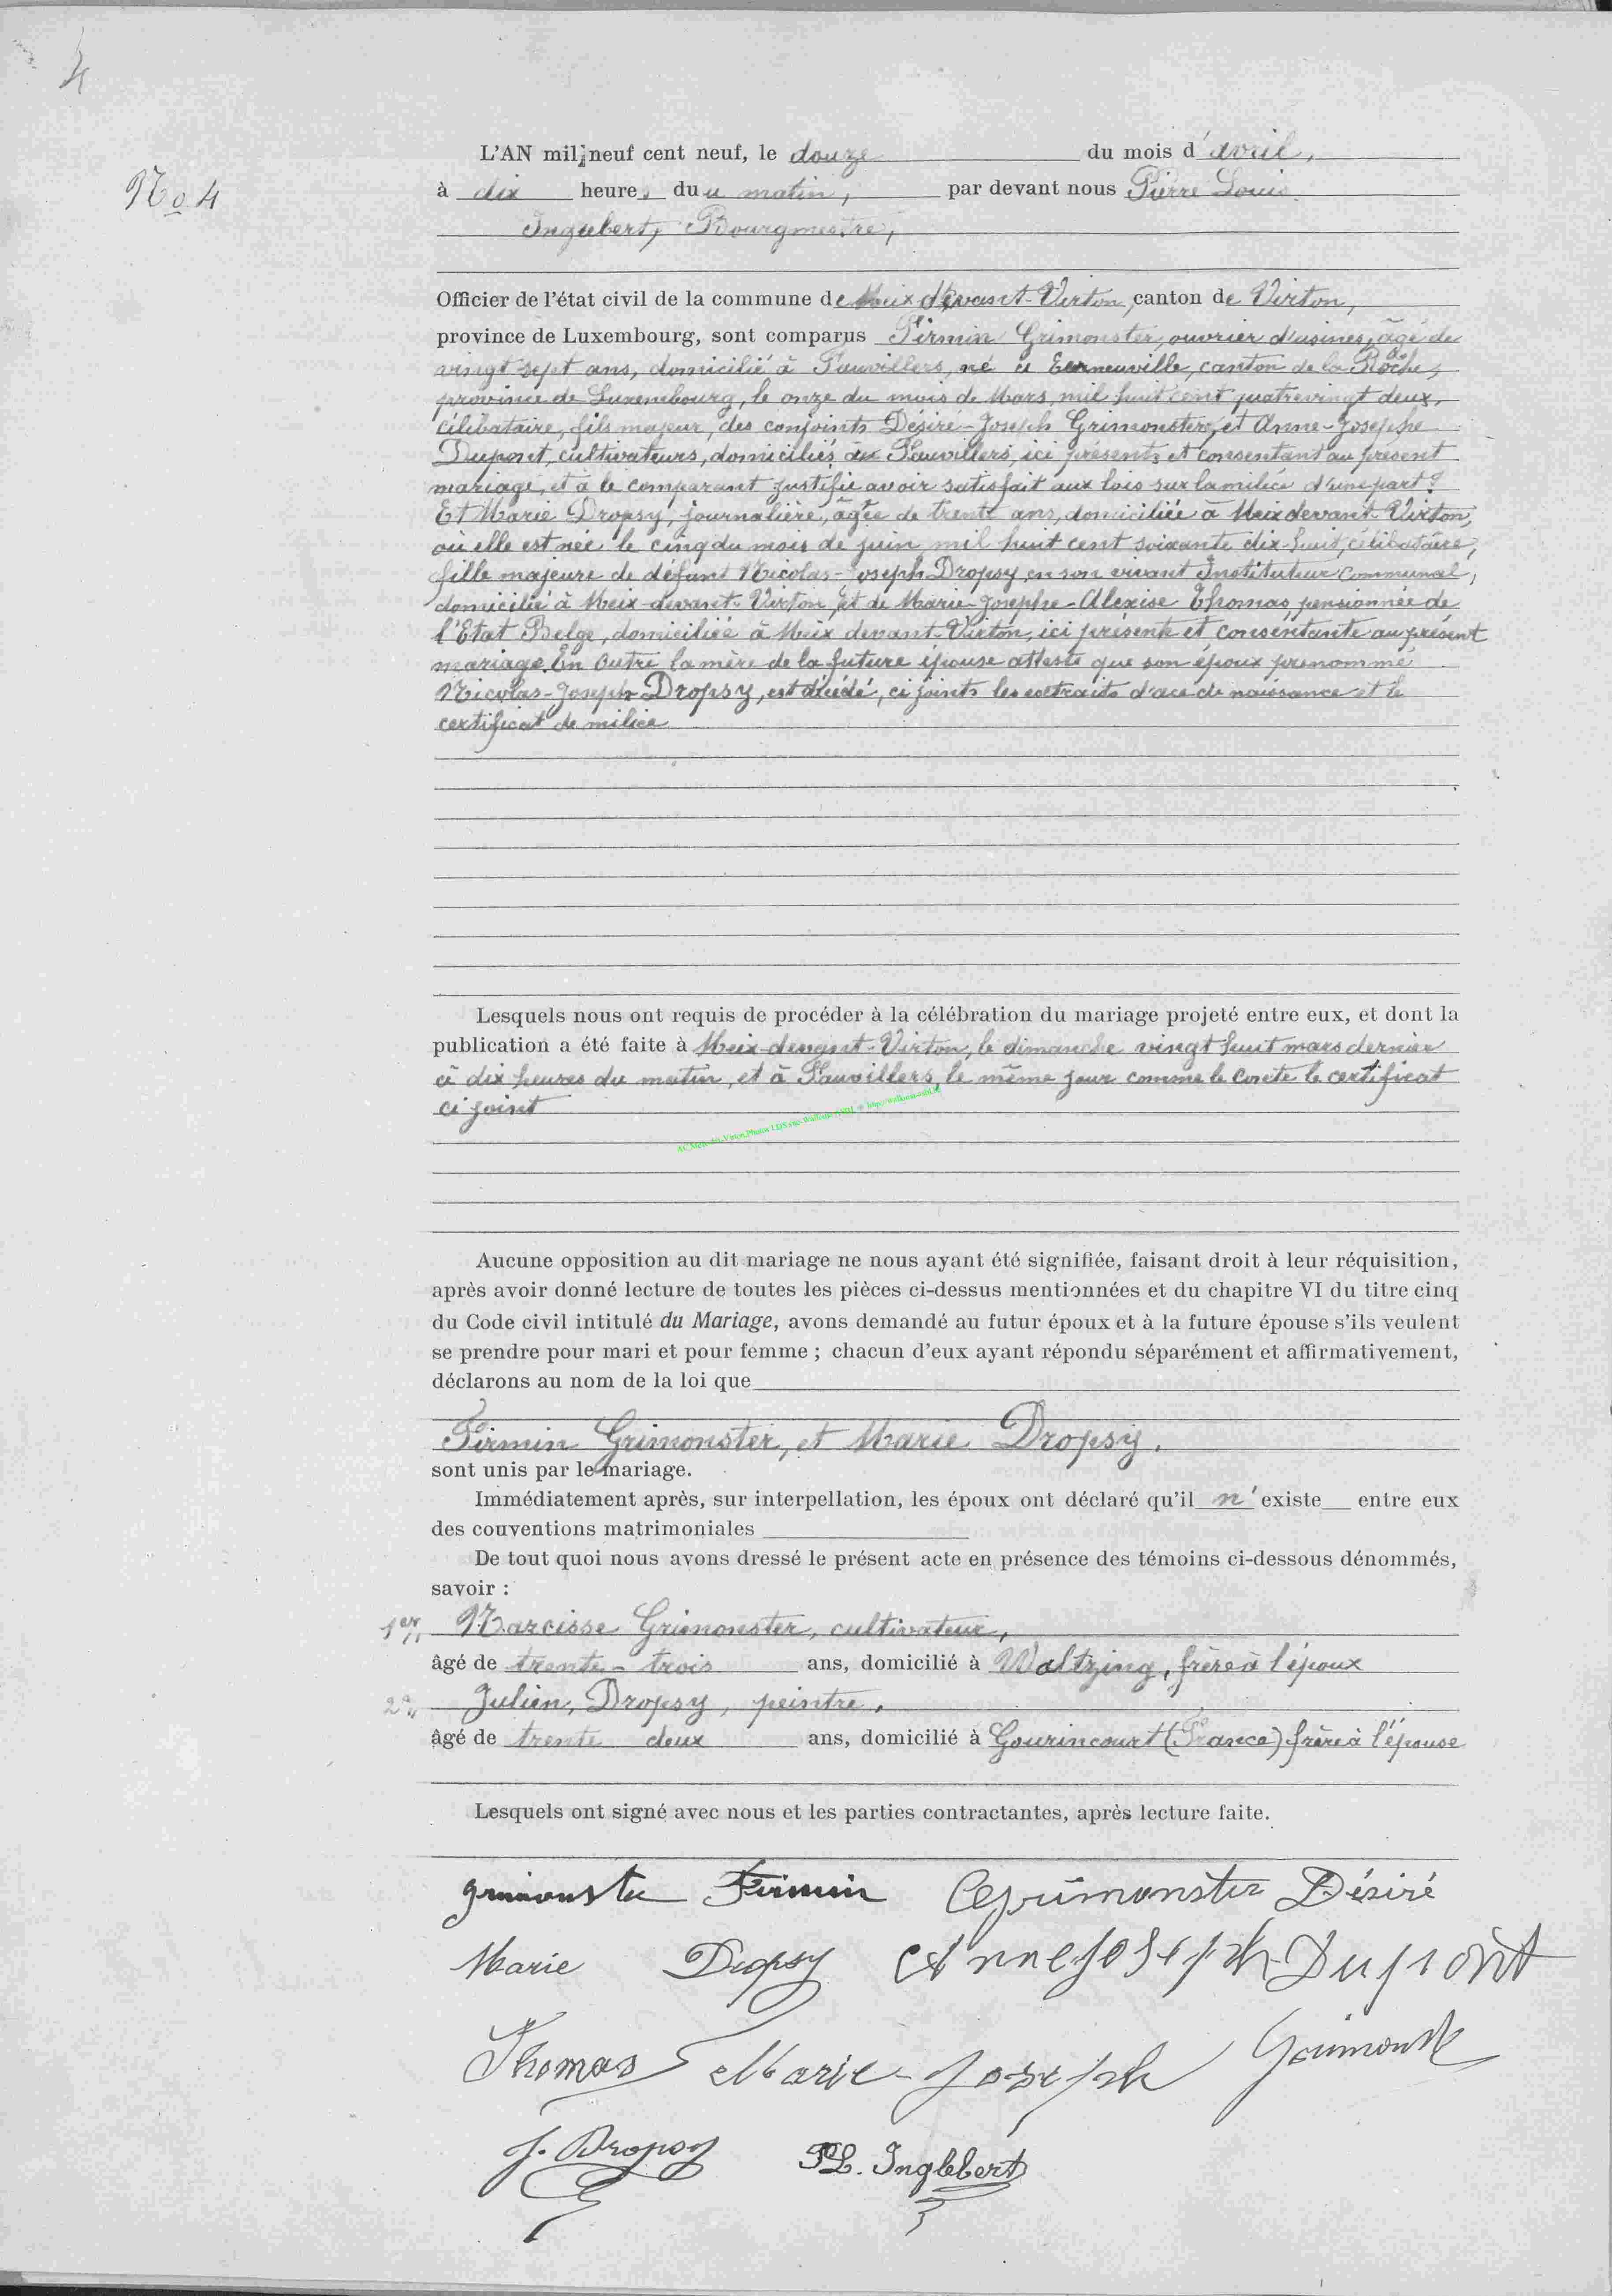 4
No 4
L'AN mil neuf cent neuf, le douze du mois d'avril,
à dix heures du u matin, par devant nous Pierre Louis
Inglebert, Bourgmestre,
Officier de l'état civil de la commune de Meix-devant-Virton, canton de Virton,
province de Luxembourg, sont comparus Firmin Grimonster, ouvrier d'usines, âgé de
vingt sept ans, domicilié à Fauvillers, né à Erneuville, canton de la Roche,
province de Luxembourg, le onze du mois de Mars, mil huit cent quatrevingt deux,
célibataire, fils majeur, des conjoints Désiré-Joseph Grimonster, et Anne-Josèphe
Dupont, cultivateurs, domiciliés à Fauvillers, ici présents et consentant au présent
mariage, et à le comparant justifié avoir satisfait aux lois sur la milice d'une part?
Et Marie Dropsy, journalière, âgée de trente ans, domiciliée à Meix devant-Virton,
où elle est née le cinq du mois de juin mil huit cent soixante dix-huit, célibataire,
fille majeure de défunt Nicolas-Joseph Dropsy en son vivant Instituteur Communal,
domicilié à Meix-devant-Virton, et de Marie-Josèphe-Alexise Thomas, pensionnée de
l'Etat Belge, domiciliée à Meix devant-Virton, ici présente et consentante au présent
mariage. En Outre la mère de la future épouse atteste que son époux prénommé
Nicolas-Joseph Dropsy, est décédé, ci joints les extraits d'ace de naissance et le
certificat de milice
Lesquels nous ont requis de procéder à la célébration du mariage projeté entre eux, et dont la
publication a été faite à Meix-devant-Virton, le dimanche vingt huit mars dernier
à dix heures du matin, et à Fauvillers, le même jour comme le conste le certificat
ci joint
Aucune opposition au dit mariage ne nous ayant été signifiée, faisant droit à leur réquisition,
après avoir donné lecture de toutes les pièces ci-dessus mentionnées et du chapitre VI du titre cinq
du Code civil intitulé du Mariage, avons demandé au futur époux et à la future épouse s'ils veulent
se prendre pour mari et pour femme ; chacun d'eux ayant répondu séparément et affirmativement,
déclarons au nom de la loi que
Firmin Grimonster, et Marie Dropsy.
sont unis par le mariage.
Immédiatement après, sur interpellation, les époux ont déclaré qu'il n'existe entre eux
des conventions matrimoniales
De tout quoi nous avons dressé le présent acte en présence des témoins ci-dessous dénommés,
savoir :
1er Narcisse Grimonster, cultivateur,
âgé de trente-trois ans, domicilié à Waltzing, frère à l'époux
2e Julien, Dropsy, peintre.
âgé de trente deux ans, domicilié à Gourincourt (France) frère à l'épouse
Lesquels ont signé avec nous et les parties contractantes, après lecture faite.
grimonster Firmin Grimonster Désiré
Marie Dropsy Anne Joseph Dupont
Thomas Marie-Joseph Grimonster
J. Dropsy PL. Inglebert